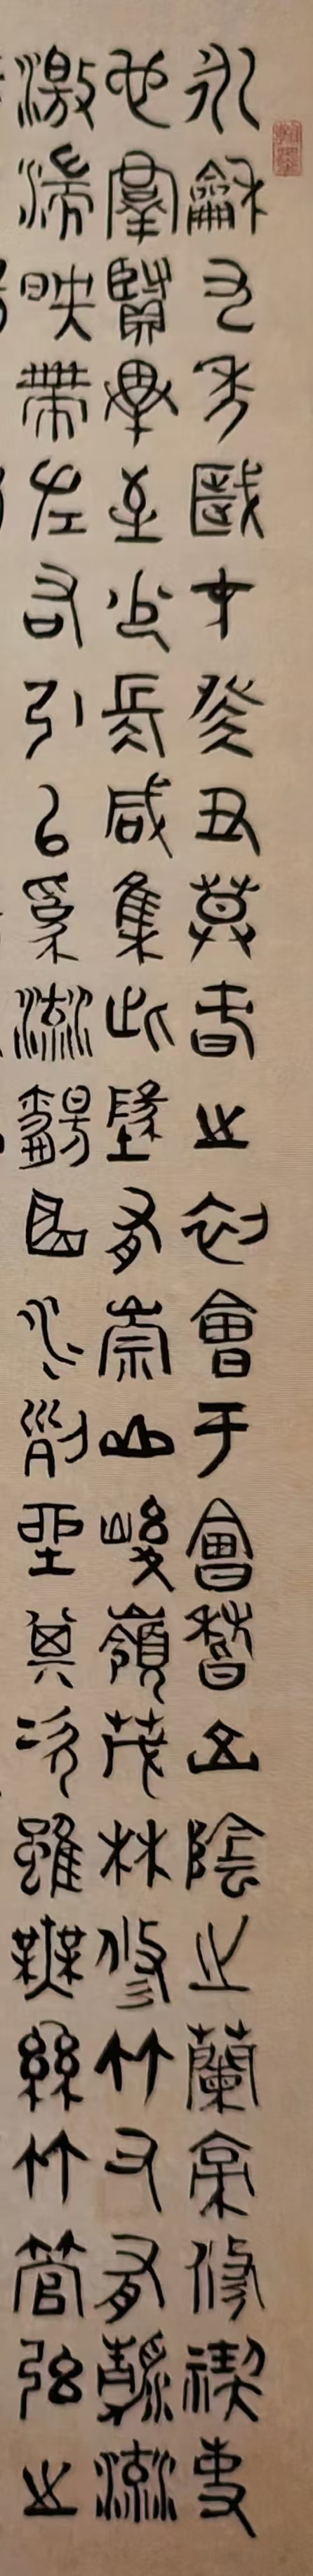 永龢九年歲在癸丑暮春之初會于會稽山陰之蘭亭修禊事
也羣賢畢至少長咸集此地有崇山峻嶺茂林修竹又有清流
激湍映帶左右引以為流觴曲水列坐其次雖無絲竹管弦之